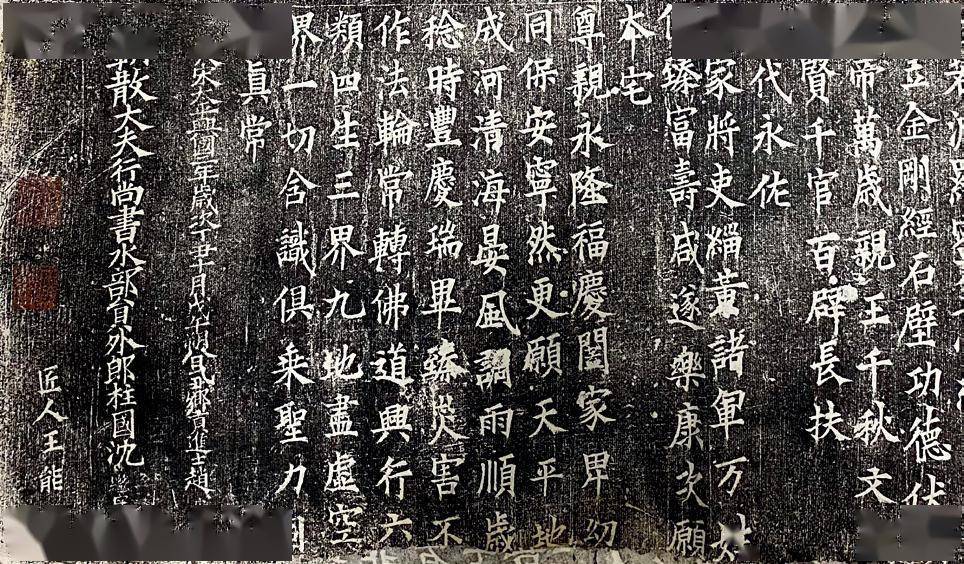 若波羅
立金剛經石壁功德伏
帝萬歲親王千秋文
賢千官百辟長扶
代永佐
家將吏緇黃諸軍万姓
臻富壽咸遂樂康次願
本宅
尊親永隆福慶闔家卑幼
同保安寧然更願天平地
成河清海晏風調雨順歲
稔時豐慶瑞畢臻災害不
作法輪常轉佛道興行六
類四生三界九地盡虛空
界一切含識俱乘聖力
真常
宋太平興國二年歲次丁丑十月戊午朔鄉貢進士趙
散大夫行尚書水部員外郎柱國沈
匠人王能